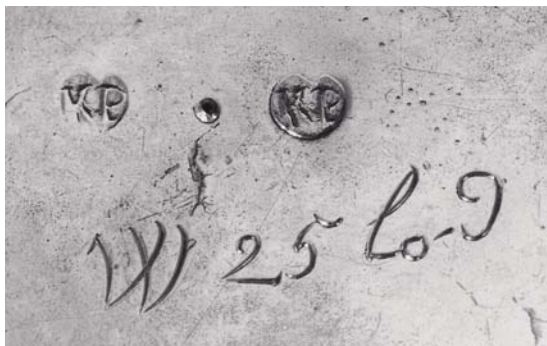 KP KP
W 25 lod